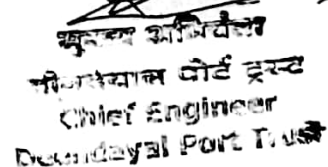 मुख्य अभियंता
दीनदयाल पोर्ट ट्रस्ट
Chief Engineer
Deendayal Port Trust